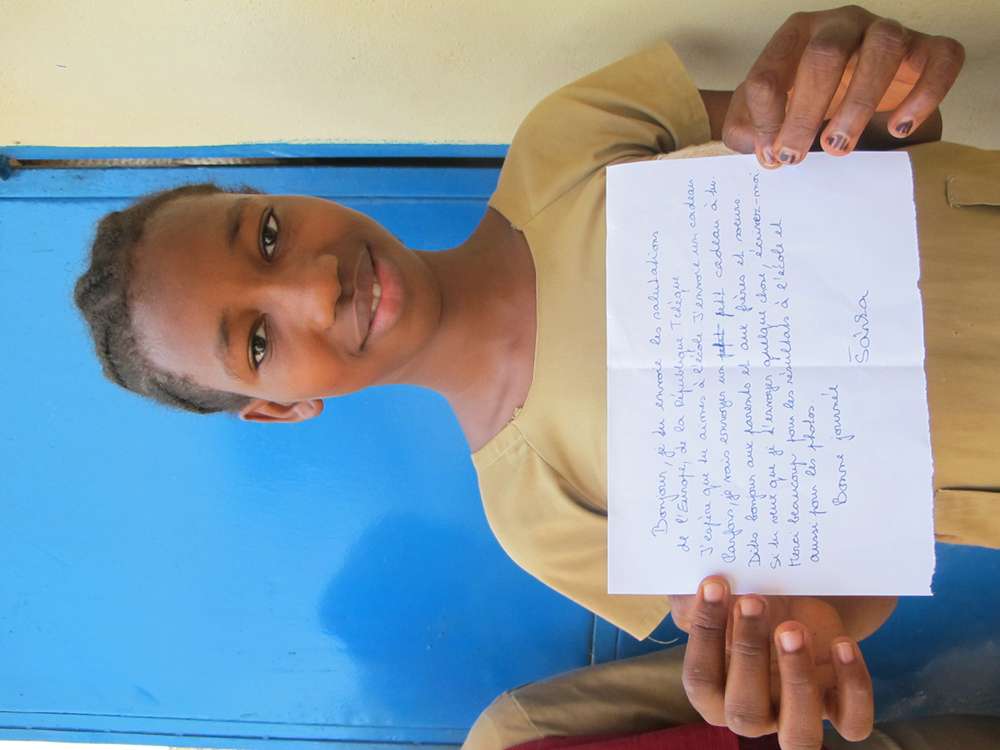 Bonjour, je tu envoie les salutations
de l'Europe, de la République Tchèque
J'espère que tu aimes à l'école J'envoie un cadeau
Parfois, je vais envoyer un petit petit cadeau à tu.
Dites bonjour aux parents et aux frères et sœurs
Si tu veux que je t'envoyes quelque chose, écrivez-moi
Merci beaucoup pour les résultats à l'école et
aussi pour les photos
Bonne journée
Sárra